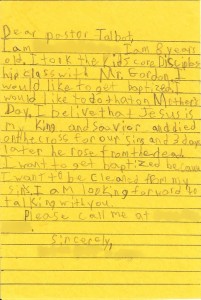 Dear pastor Talbot,
I am        I am 8 years
old, I took the Kids core Disciples
hip class with Mr. Gordon. I
would like to get baptized. I
would like to do that on Mothers
Day. I belive that Jesus is
my King and Savior and died
on the cross for our sins and 3 days
later he rose from the dead
I want to get baptized because
I want to be cleaned from my
sins. I am looking forward to
talking with you.
Please call me at
Sincerely,